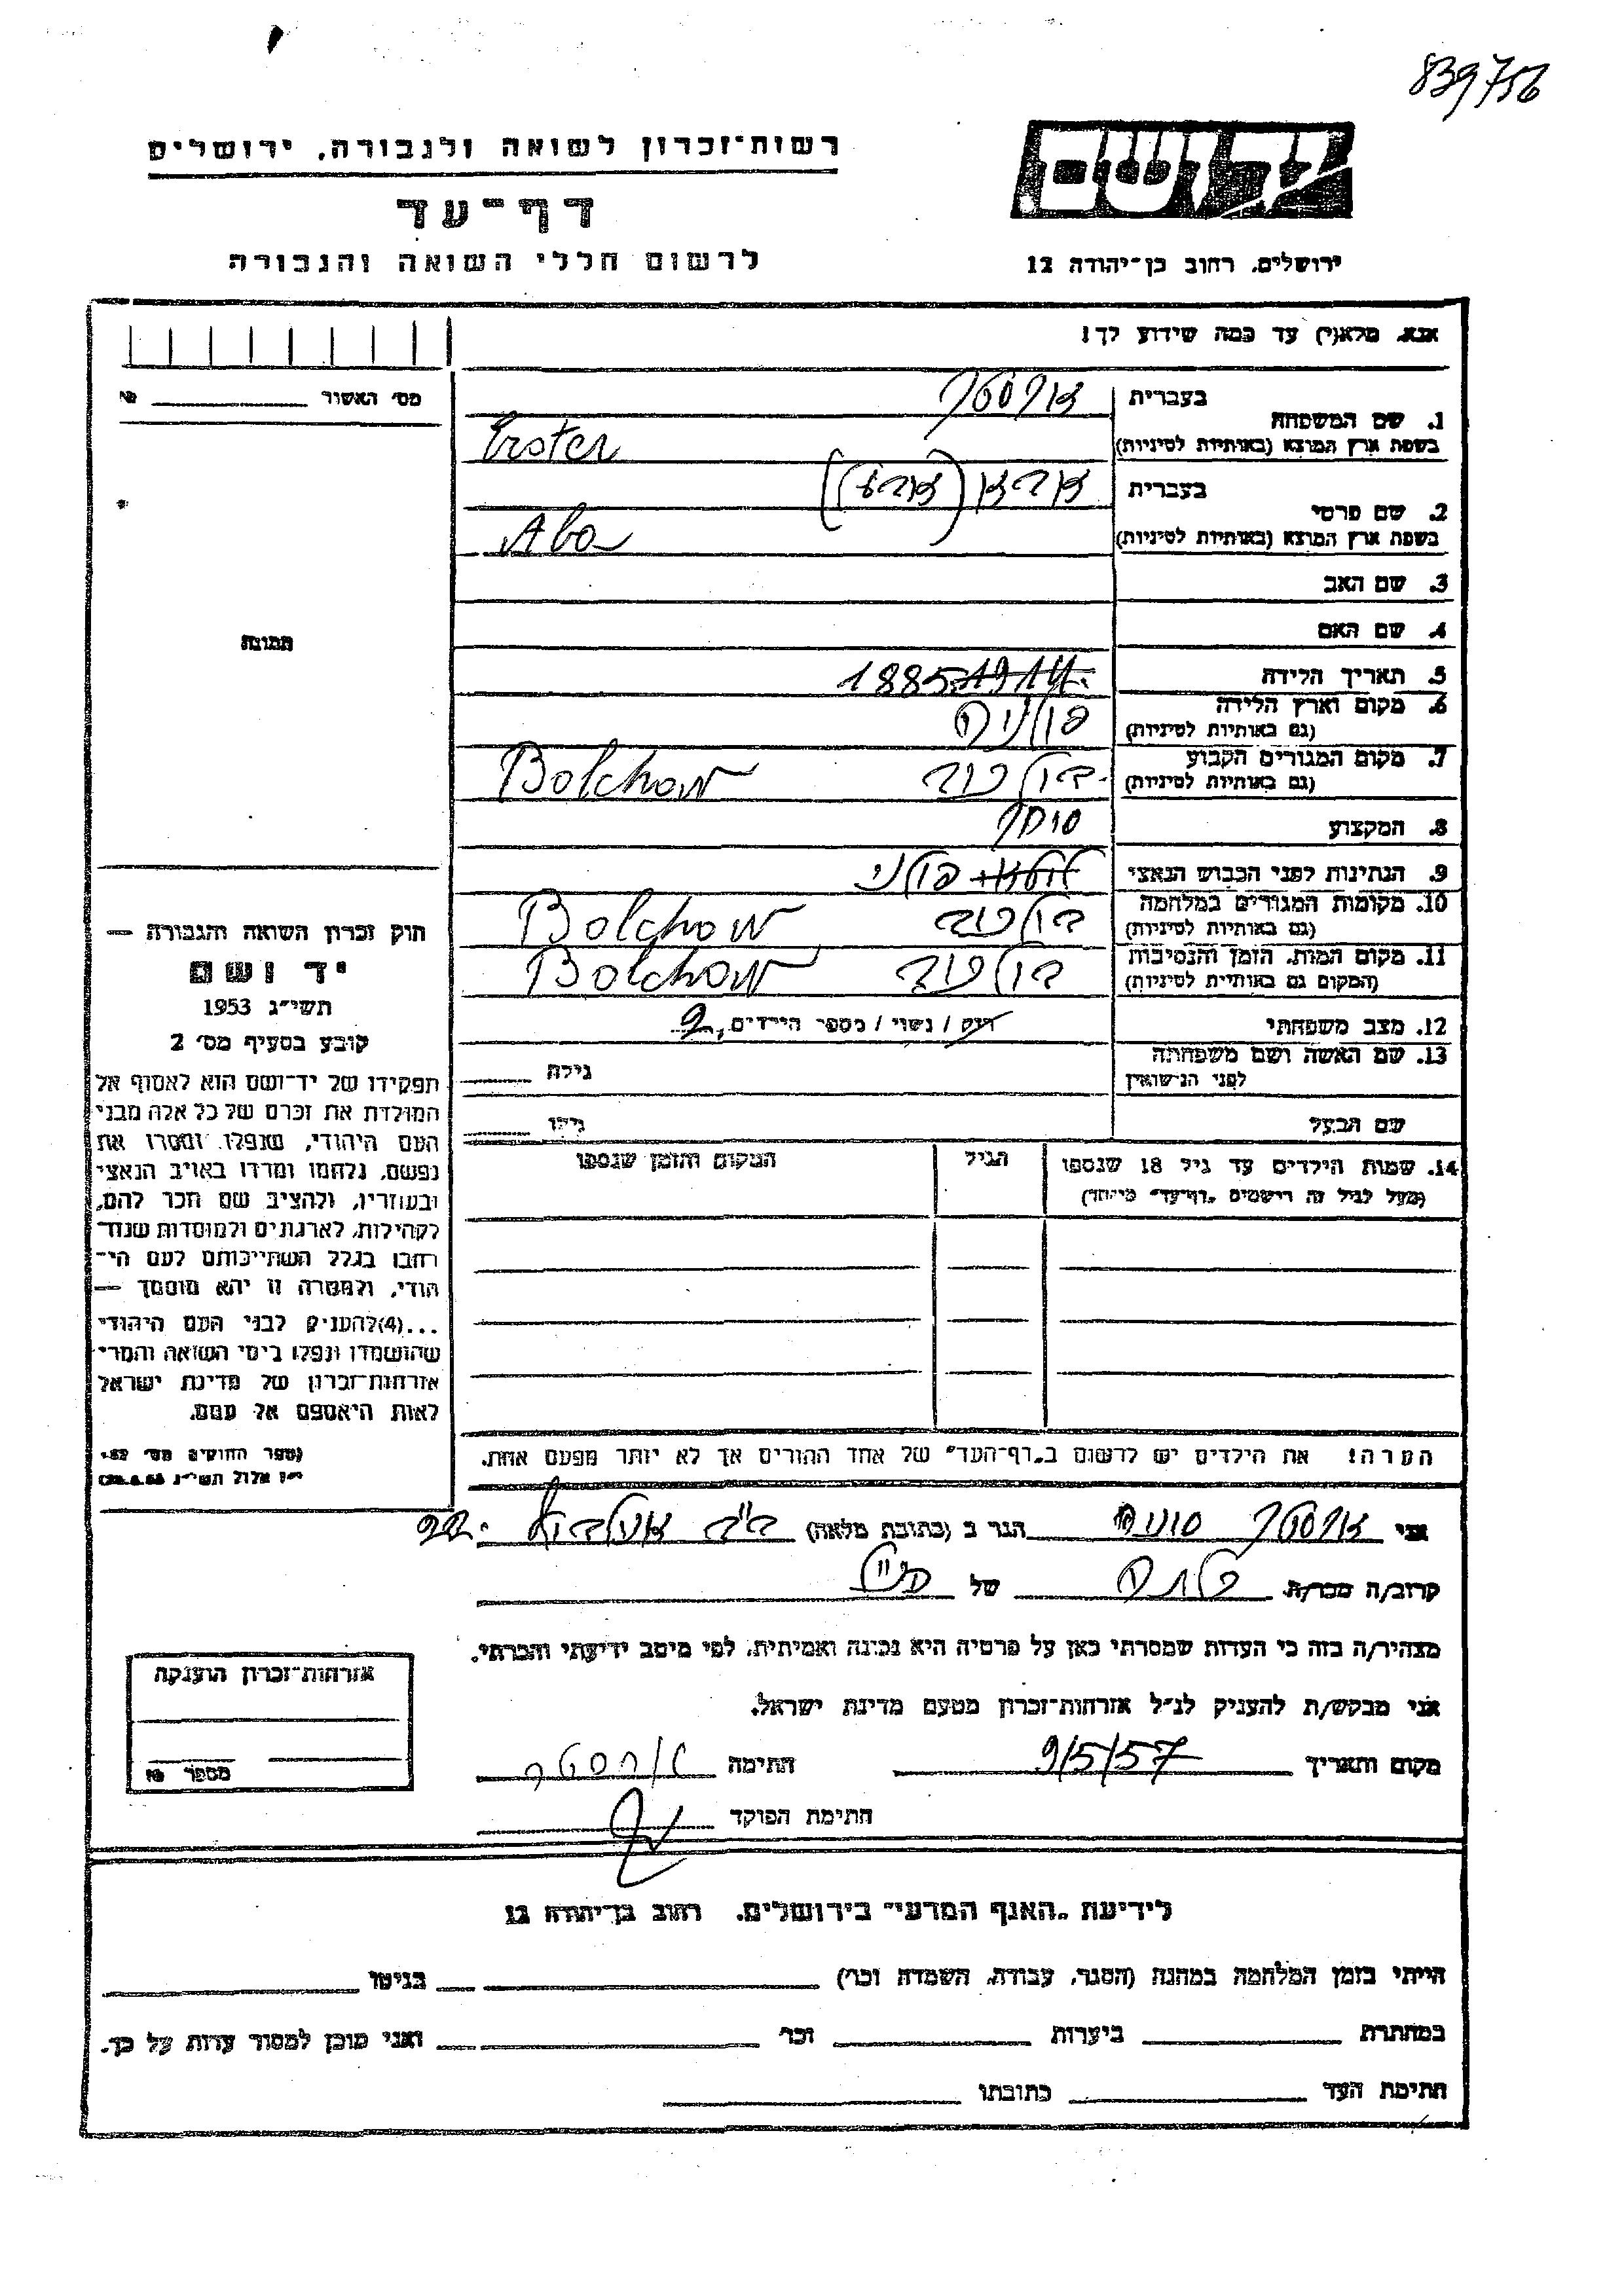 839756
רשות־זכרון לשואה ולגבורה, ירושלים
דף־עד
לרשום חללי השואה והגבורה
יד ושם
ירושלים, רחוב בן־יהודה 12
אנא, מלא(י) עד כמה שידוע לך!
מס׳ האשור № 
בעברית
1. שם המשפחה
בשפת ארץ המוצא (באותיות לטיניות) Erster
בעברית
2. שם פרטי
בשפת ארץ המוצא (באותיות לטיניות) Aba
3. שם האב
4. שם האם
תמונה
5. תאריך הלידה 1885 1914
6. מקום וארץ הלידה
(גם באותיות לטיניות)
7. מקום המגורים הקבוע בולכוב Bolchow
(גם באותיות לטיניות)
8. המקצוע סוחר
9. הנתינות לפני הכבוש הנאצי פולני
10. מקומות המגורים במלחמה בולכוב Bolchow
(גם באותיות לטיניות)
11. מקום המות, הזמן והנסיבות בולכוב Bolchow
(המקום גם באותיות לטיניות)
12. מצב משפחתי רווק / נשוי / מספר הילדים, 2
13. שם האשה ושם משפחתה גילה
לפני הנישואין
שם הבעל גילו
14. שמות הילדים עד גיל 18 שנספו הגיל המקום והזמן שנספו
(מעל לגיל זה רישמים „דף־עד" מיוחד)
הערה! את הילדים יש לרשום ב„דף־העד" של אחד ההורים אך לא יותר מפעם אחת.
חוק זכרון השואה והגבורה —
יד ושם
תשי״ג 1953
קובע בסעיף מס׳ 2
תפקידו של יד־ושם הוא לאסוף אל
המולדת את זכרם של כל אלה מבני
העם היהודי, שנפלו ומסרו את
נפשם, נלחמו ומרדו באויב הנאצי
ובעוזריו, ולהציב שם וזכר להם,
לקהילות, לארגונים ולמוסדות שנח־
רבו בגלל השתייכותם לעם הי־
הודי, ולמטרה זו יהא מוסמך —
...(4)להעניק לבני העם היהודי
שהושמדו ונפלו בימי השואה והמרי
אזרחות־זכרון של מדינת ישראל
לאות היאספם אל עמם.
(ספר החוקים מס׳
אלול תשי״ג
אני ארסטר הגר ב (כתובת מלאה)
קרוב/ה מכר/ת של
מצהיר/ה בזה כי העדות שמסרתי כאן על פרטיה היא נכונה ואמיתית, לפי מיטב ידיעתי והכרתי.
אני מבקש/ת להעניק לנ״ל אזרחות־זכרון מטעם מדינת ישראל.
מקום ותאריך 9/5/57 חתימה ארסטר
חתימת הפוקד
אזרחות־זכרון הוענקה
מספר №
לידיעת „האגף המדעי" בירושלים, רחוב בן־יהודה 12
הייתי בזמן המלחמה במחנה (הסגר, עבודה, השמדה וכו׳) בגיטו
במחתרת ביערות וכו׳ ואני מוכן למסור עדות על כך.
חתימת העד כתובתו